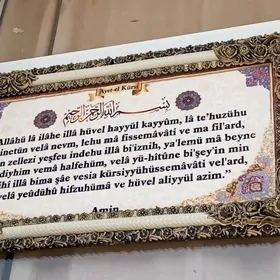 Ayet-el Kürsi
بِسْمِ اللهِ الرَّحْمٰنِ الرَّحِيمِ
Allâhü lâ ilâhe illâ hüvel hayyül kayyûm, lâ te'huzühu
sinetün velâ nevm, lehu mâ fissemâvâti ve ma fil'ard,
zellezi yeşfeu indehu illâ bi'iznih, ya'lemü mâ beyne
diyhim vemâ halfehüm, velâ yü-hîtûne bi'şey'in min
ihî illâ bima şâe vesia kürsiyyühüssemâvâti vel'ard,
velâ yeûdühû hifzuhümâ ve hüvel aliyyül azim."
Amin